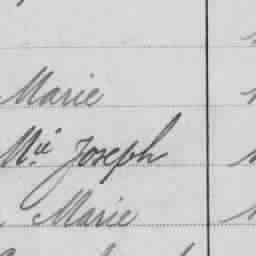 Marie
M.ie Joseph
Marie